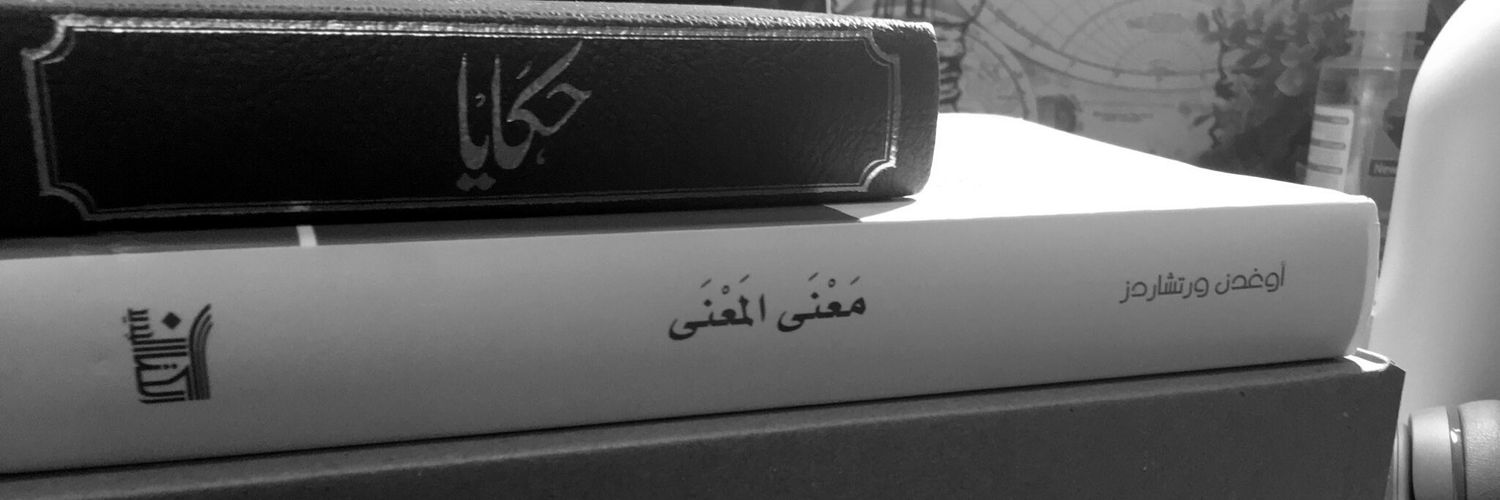 حكايا
أوغدن ورتشاردز
مَعْنَى المَعْنَى
New